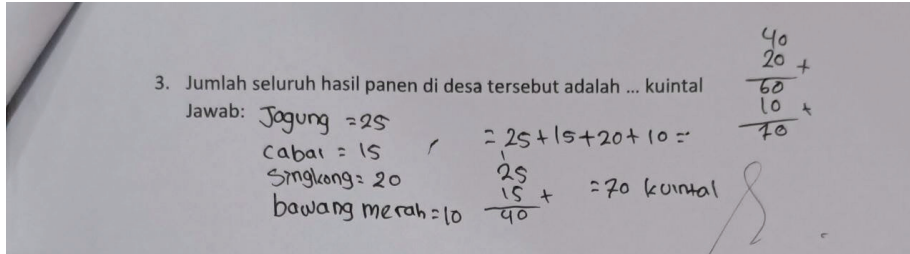 3. Jumlah seluruh hasil panen di desa tersebut adalah ... kuintal
Jawab: Jagung = 25
cabai = 15
Singkong = 20
bawang merah = 10
= 25 + 15 + 20 + 10 =
1
25
15 +
40
= 70 kuintal
40
20 +
60
10 +
70